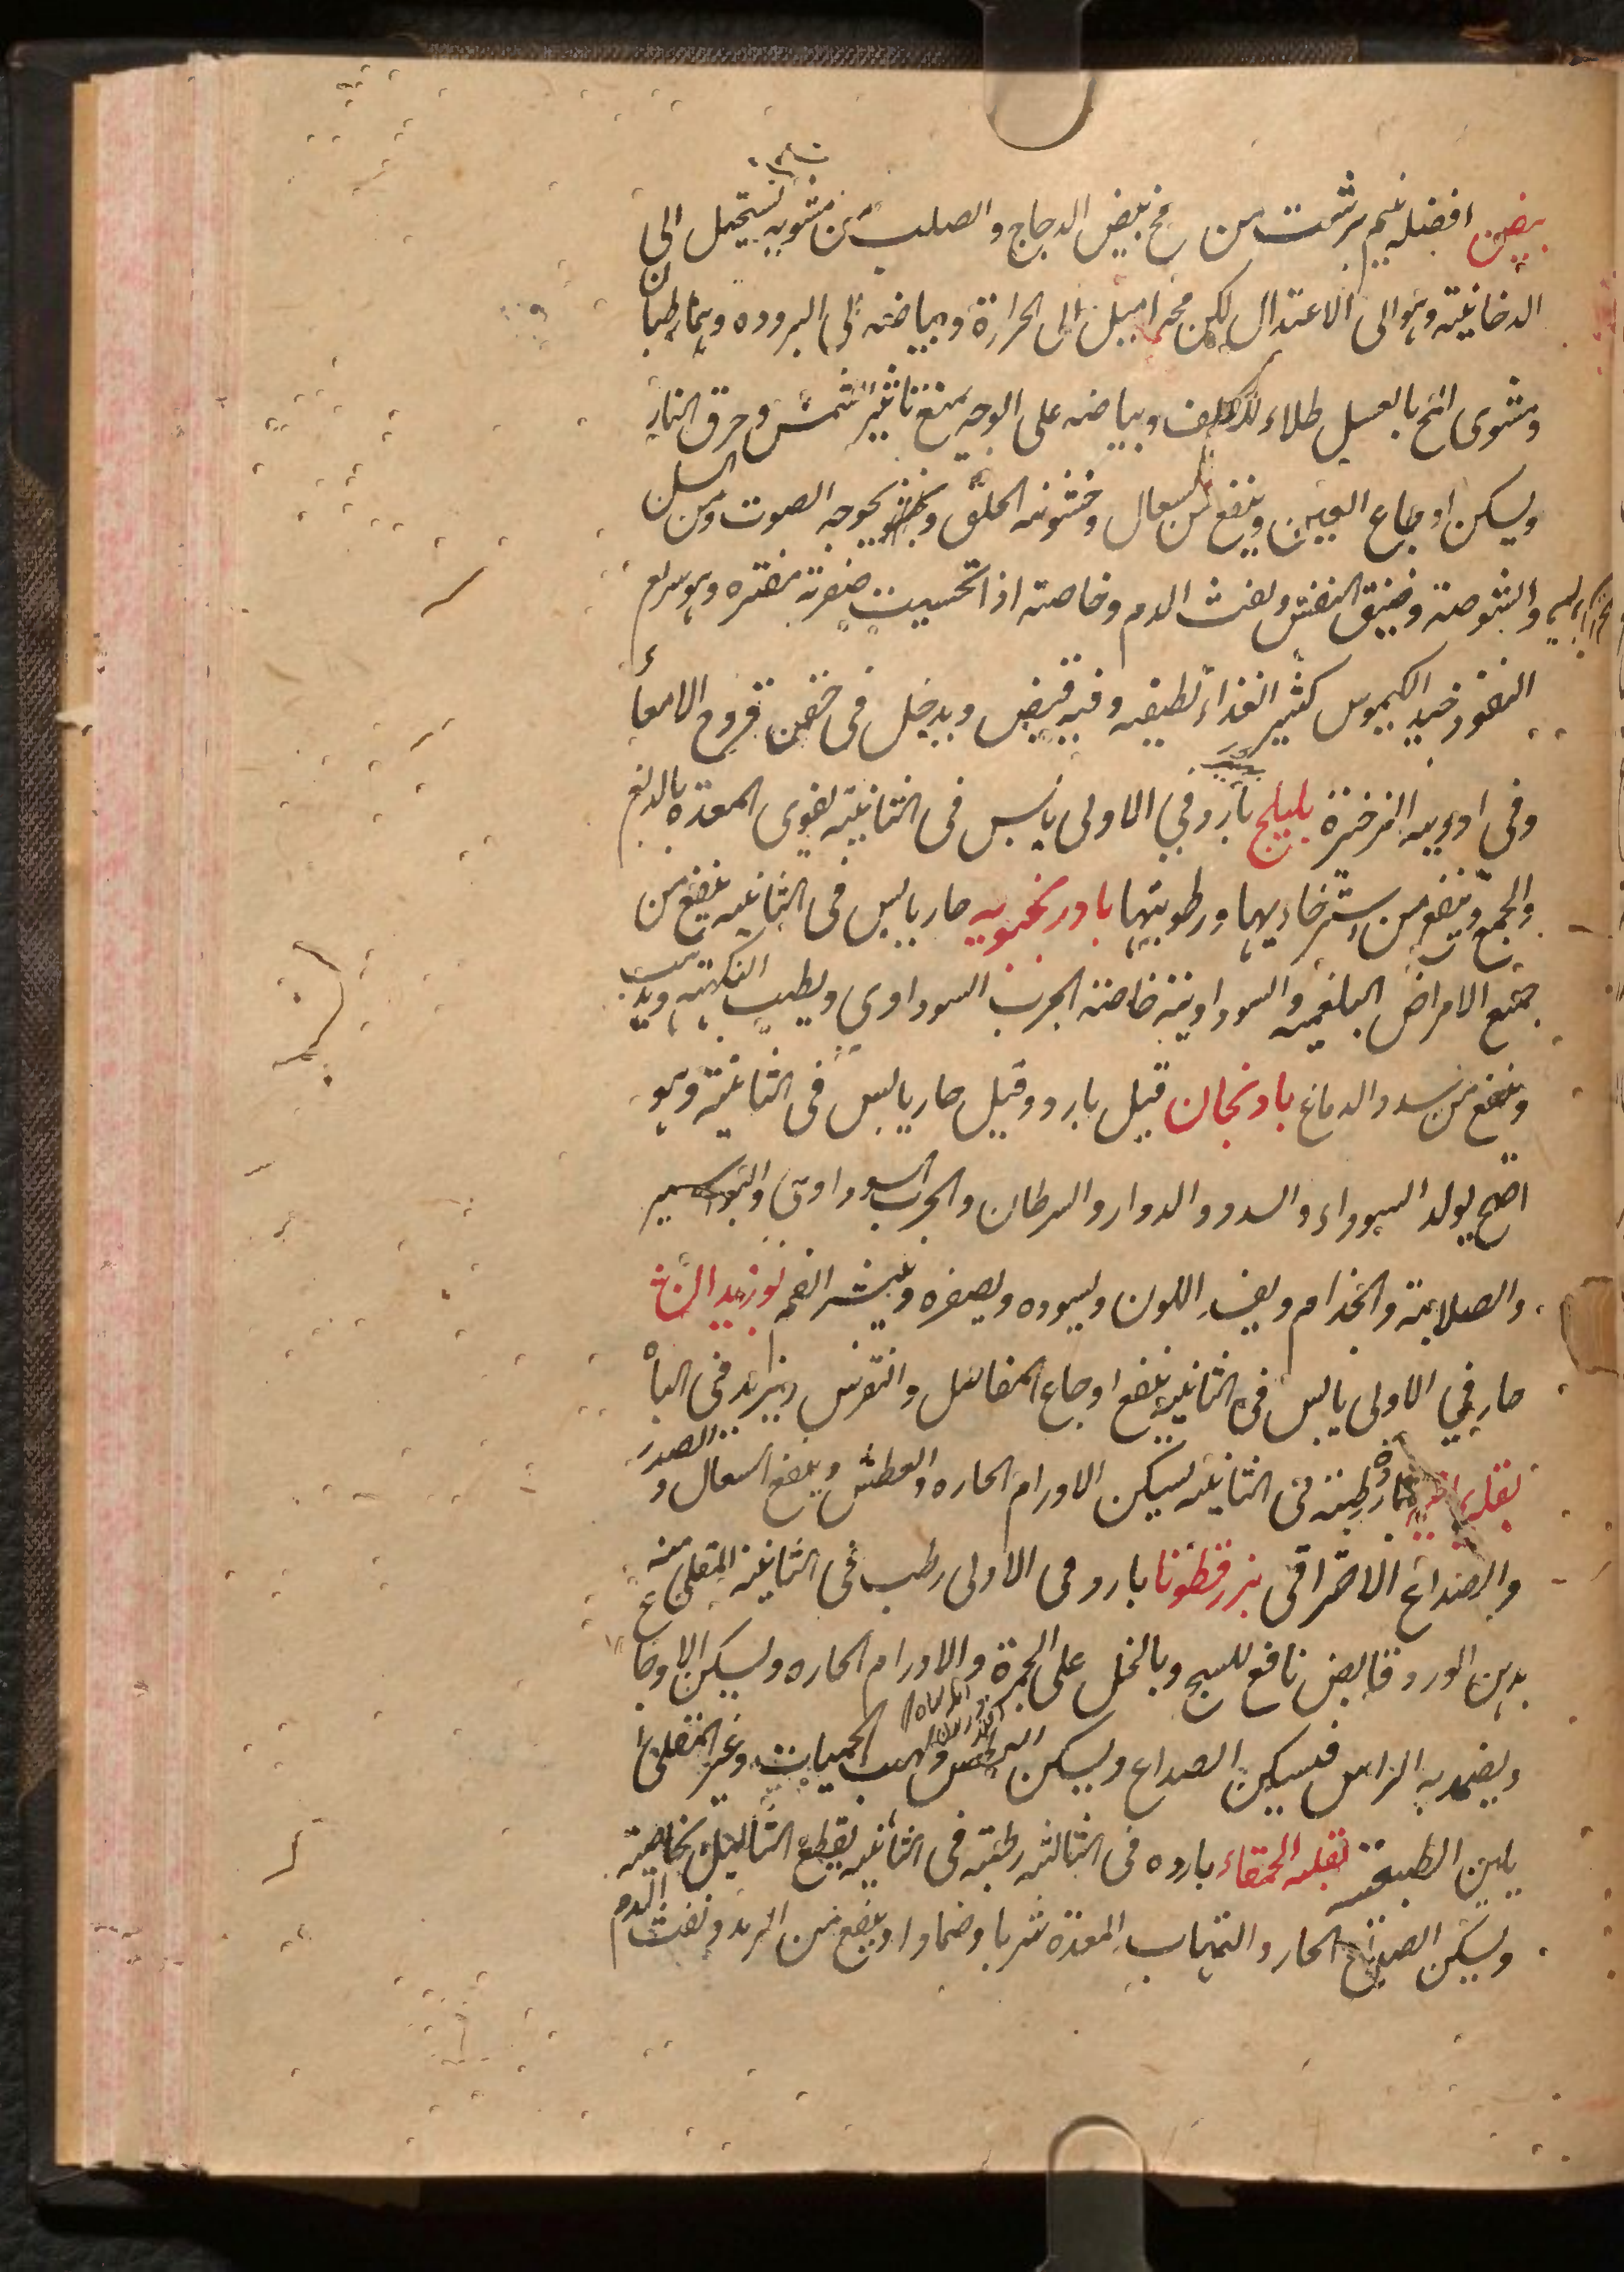 بيض افضله نيم برشت من مح بيض الدجاج والصلب من مشويه يستحيل الى
الدخانية وهو الى الاعتدال لكن محه اميل الى الحرارة وبياضه الى البروده وهما رطبان
ومشوى المح بالعسل طلاء للكلف وبياضه على الوجه يمنع تاثير الشمس وحرق النار
ويسكن اوجاع العين وينفع من السعال وخشونه الحلق وبحوحه الصوت ومن السل
والشوصة وضيق النفس ونفث الدم وخاصة اذا تحسيت صفرته مفتره وهو سريع
النفوذ جيد الكيموس كثير الغذاء لطيفه وفيه قبض ويدخل في حقن قروح الامعاء
وفى ادوية الزحير بليلج بارد في الاولى يابس فى الثانية يقوى المعدة بالدبغ
والجمع وينفع من استرخاءيها ورطوبتها بادرنجبويه حار يابس فى الثانيه ينفع من
جميع الامراض البلغميه والسوداوية خاصة الجرب السوداوي ويطيب النكهة ويذهب
وينفع من سدد الدماغ بادنجان قيل بارد وقيل حار يابس فى الثانية وهو
اصح يولد السوداء والسدد والدوار والسرطان والجرب السوداوى والبواسير
والصلابة والجذام ويفسد اللون ويسوده ويصفره ويبثر الفم بوزيدان
حار في الاولى يابس فى الثانيه ينفع اوجاع المفاصل والنقرس ويزيد فى الباه
بقله باردة رطبة فى الثانية يسكن الاورام الحاره والعطش وينفع السعال و الصدر
والصداع الاحتراقى بزرقطونا بارد فى الاولى رطب فى الثانية المقلى منه
بدهن الورد قابض نافع للسحج وبالخل على الجمرة والاورام الحاره ويسكن الاوجاع
ويضمد به الراس فيسكن الصداع ويسكن العطش ولهيب الحميات وغير المقلى
يلين الطبيعة بقله الحمقاء بارده فى الثالثه رطبة فى الثانيه يقطع الثآليل بخاصيته
ويسكن الصداع الحار والتهاب المعدة شربا وضمادا وينفع من الرمد ونفث الدم